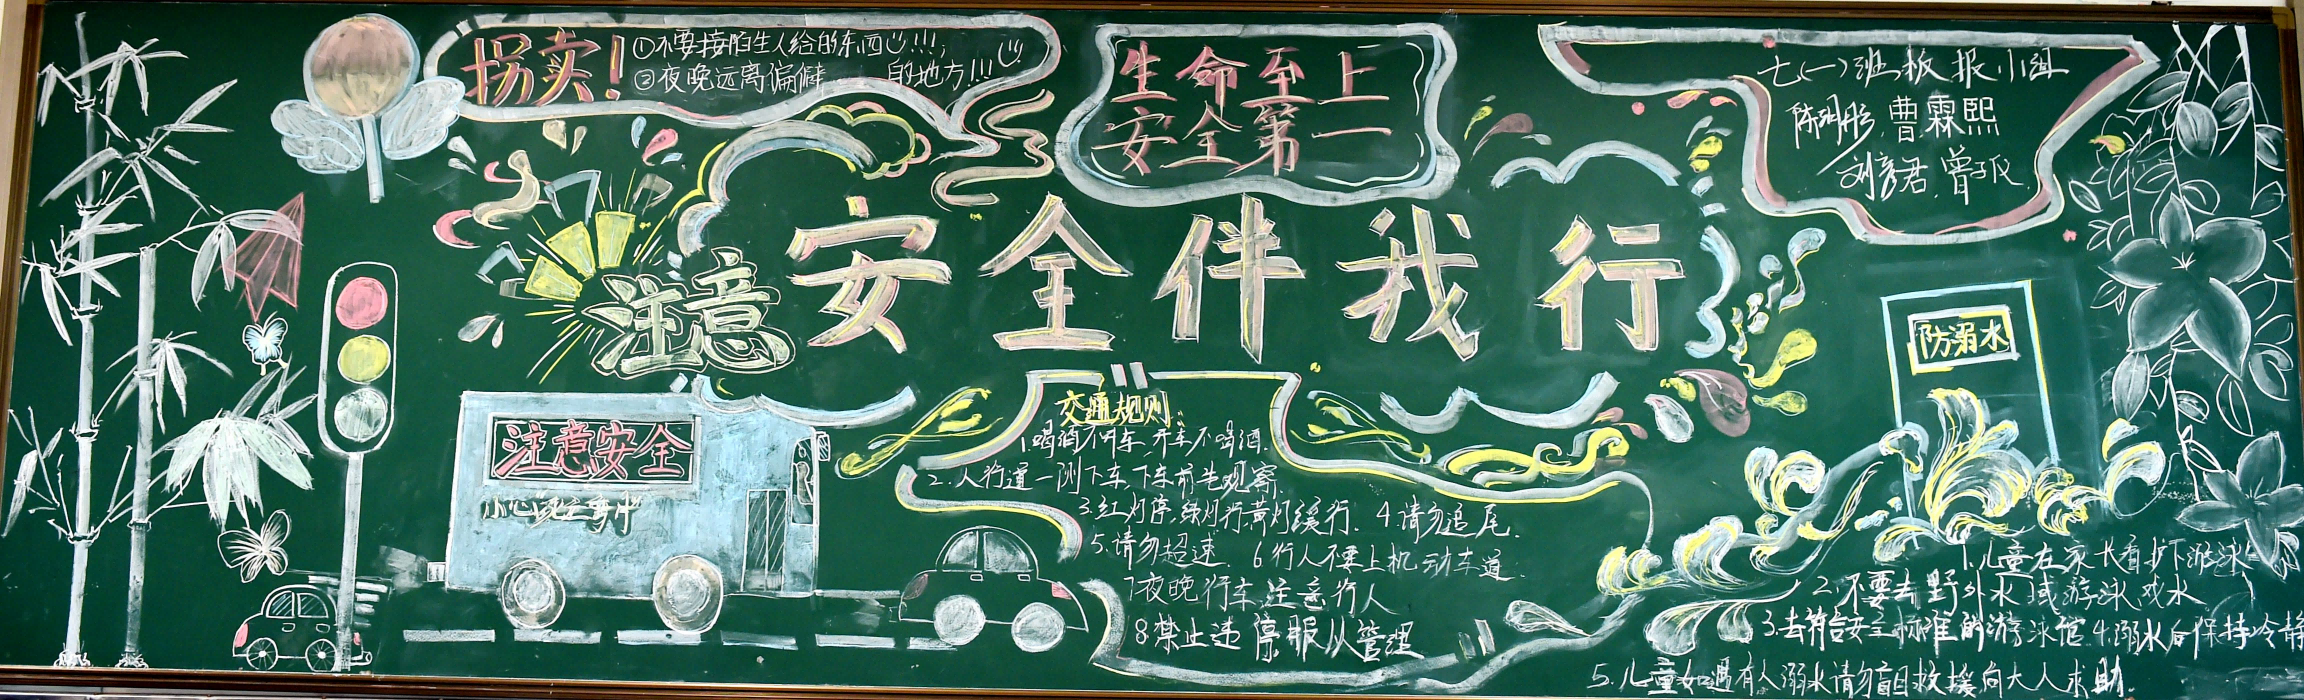 拐卖!
①不要接陌生人给的东西!!!;
②夜晚远离偏僻 的地方!!!
生命至上
安全第一
七(一)班板报小组
曹霖熙
刘彦君 曾子仪
注意
安全伴我行
防溺水
注意安全
交通规则:
1.喝酒不开车,开车不喝酒.
2.人行道一侧下车,下车前先观察.
3.红灯停,绿灯行,黄灯缓行. 4.请勿追尾.
5.请勿超速. 6.行人不要上机动车道.
7.夜晚行车,注意行人
8.禁止违停服从管理
1.儿童在家长看护下游泳
2.不要去野外水域游泳戏水
3.去符合安全标准的游泳馆 4.溺水后保持冷静
5.儿童如遇有人溺水请勿盲目救援向大人求助.